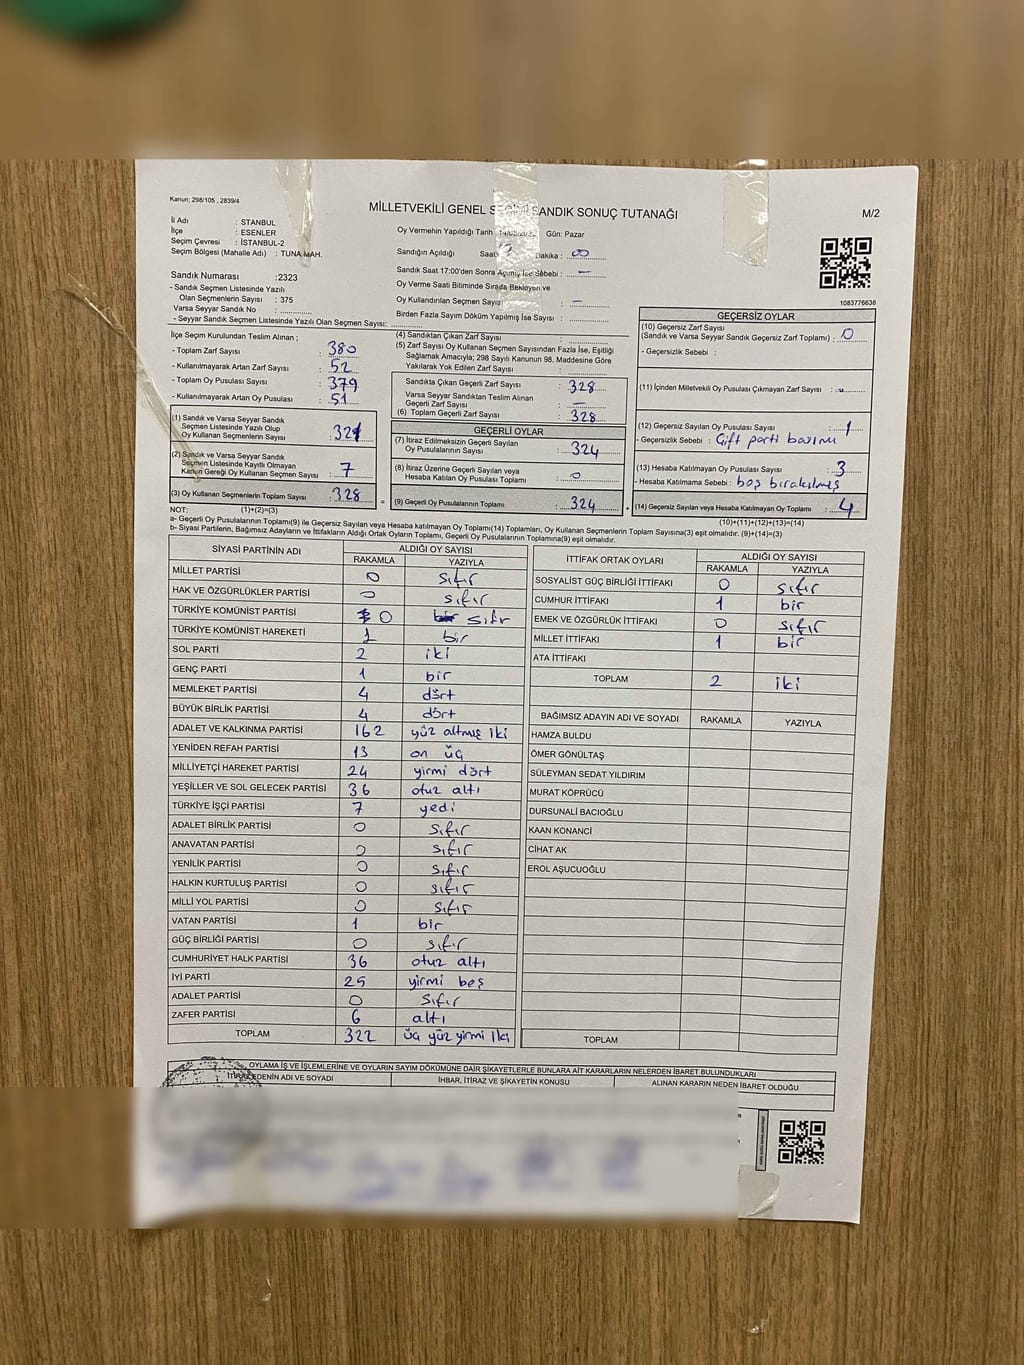 Kanun; 298/105 , 2839/4
MİLLETVEKİLİ GENEL SEÇİMİ SANDIK SONUÇ TUTANAĞI
M/2
İl Adı : STANBUL
İlçe : ESENLER
Seçim Çevresi : İSTANBUL-2
Seçim Bölgesi (Mahalle Adı) : TUNA MAH.
Sandık Numarası :2323
- Sandık Seçmen Listesinde Yazılı
Olan Seçmenlerin Sayısı : 375
Varsa Seyyar Sandık No :
- Seyyar Sandık Seçmen Listesinde Yazılı Olan Seçmen Sayısı:
Oy Vermehin Yapıldığı Tarih Gün: Pazar
Sandığın Açıldığı Saat Dakika : 00
Sandık Saat 17:00'den Sonra Açılmış İse Sebebi : –
Oy Verme Saati Bitiminde Sırada Bekleyen ve
Oy Kullandırılan Seçmen Sayısı : –
Birden Fazla Sayım Döküm Yapılmış İse Sayısı :
1083776638
İlçe Seçim Kurulundan Teslim Alınan ;
- Toplam Zarf Sayısı : 380
- Kullanılmayarak Artan Zarf Sayısı : 52
- Toplam Oy Pusulası Sayısı : 379
- Kullanılmayarak Artan Oy Pusulası : 51
(1) Sandık ve Varsa Seyyar Sandık
Seçmen Listesinde Yazılı Olup
Oy Kullanan Seçmenlerin Sayısı : 321
(2) Sandık ve Varsa Seyyar Sandık
Seçmen Listesinde Kayıtlı Olmayan
Kanun Gereği Oy Kullanan Seçmen Sayısı : 7
(3) Oy Kullanan Seçmenlerin Toplam Sayısı : 328
(4) Sandıktan Çıkan Zarf Sayısı :
(5) Zarf Sayısı Oy Kullanan Seçmen Sayısından Fazla İse, Eşitliği
Sağlamak Amacıyla; 298 Sayılı Kanunun 98. Maddesine Göre
Yakılarak Yok Edilen Zarf Sayısı :
Sandıkta Çıkan Geçerli Zarf Sayısı : 328
Varsa Seyyar Sandıktan Teslim Alınan
Geçerli Zarf Sayısı : –
(6) Toplam Geçerli Zarf Sayısı : 328
GEÇERLİ OYLAR
(7) İtiraz Edilmeksizin Geçerli Sayılan
Oy Pusulalarının Sayısı : 324
(8) İtiraz Üzerine Geçerli Sayılan veya
Hesaba Katılan Oy Pusulası Toplamı : 0
= (9) Geçerli Oy Pusulalarının Toplamı : 324
GEÇERSİZ OYLAR
(10) Geçersiz Zarf Sayısı
(Sandık ve Varsa Seyyar Sandık Geçersiz Zarf Toplamı) : 0
- Geçersizlik Sebebi :
(11) İçinden Milletvekili Oy Pusulası Çıkmayan Zarf Sayısı :
(12) Geçersiz Sayılan Oy Pusulası Sayısı : 1
- Geçersizlik Sebebi : Çift parti basımı
(13) Hesaba Katılmayan Oy Pusulası Sayısı : 3
- Hesaba Katılmama Sebebi : boş bırakılmış
+ (14) Geçersiz Sayılan veya Hesaba Katılmayan Oy Toplamı : 4
NOT: (1)+(2)=(3)
(10)+(11)+(12)+(13)=(14)
a- Geçerli Oy Pusulalarının Toplamı(9) ile Geçersiz Sayılan veya Hesaba katılmayan Oy Toplamı(14) Toplamları, Oy Kullanan Seçmenlerin Toplam Sayısına(3) eşit olmalıdır. (9)+(14)=(3)
b- Siyasi Partilerin, Bağımsız Adayların ve İttifakların Aldığı Ortak Oyların Toplamı, Geçerli Oy Pusulalarının Toplamına(9) eşit olmalıdır.
SİYASİ PARTİNİN ADI ALDIĞI OY SAYISI
RAKAMLA YAZIYLA
MİLLET PARTİSİ 0 sıfır
HAK VE ÖZGÜRLÜKLER PARTİSİ 0 sıfır
TÜRKİYE KOMÜNİST PARTİSİ 0 sıfır
TÜRKİYE KOMÜNİST HAREKETİ 1 bir
SOL PARTİ 2 iki
GENÇ PARTİ 1 bir
MEMLEKET PARTİSİ 4 dört
BÜYÜK BİRLİK PARTİSİ 4 dört
ADALET VE KALKINMA PARTİSİ 162 yüz altmış iki
YENİDEN REFAH PARTİSİ 13 on üç
MİLLİYETÇİ HAREKET PARTİSİ 24 yirmi dört
YEŞİLLER VE SOL GELECEK PARTİSİ 36 otuz altı
TÜRKİYE İŞÇİ PARTİSİ 7 yedi
ADALET BİRLİK PARTİSİ 0 sıfır
ANAVATAN PARTİSİ 0 sıfır
YENİLİK PARTİSİ 0 sıfır
HALKIN KURTULUŞ PARTİSİ 0 sıfır
MİLLİ YOL PARTİSİ 0 sıfır
VATAN PARTİSİ 1 bir
GÜÇ BİRLİĞİ PARTİSİ 0 sıfır
CUMHURİYET HALK PARTİSİ 36 otuz altı
İYİ PARTİ 25 yirmi beş
ADALET PARTİSİ 0 sıfır
ZAFER PARTİSİ 6 altı
TOPLAM 322 üç yüz yirmi iki
İTTİFAK ORTAK OYLARI ALDIĞI OY SAYISI
RAKAMLA YAZIYLA
SOSYALİST GÜÇ BİRLİĞİ İTTİFAKI 0 sıfır
CUMHUR İTTİFAKI 1 bir
EMEK VE ÖZGÜRLÜK İTTİFAKI 0 sıfır
MİLLET İTTİFAKI 1 bir
ATA İTTİFAKI
TOPLAM 2 iki
BAĞIMSIZ ADAYIN ADI VE SOYADI RAKAMLA YAZIYLA
HAMZA BULDU
ÖMER GÖNÜLTAŞ
SÜLEYMAN SEDAT YILDIRIM
MURAT KÖPRÜCÜ
DURSUNALİ BACIOĞLU
KAAN KONANCİ
CİHAT AK
EROL AŞUCUOĞLU
TOPLAM
OYLAMA İŞ VE İŞLEMLERİNE VE OYLARIN SAYIM DÖKÜMÜNE DAİR ŞİKAYETLERLE BUNLARA AİT KARARLARIN NELERDEN İBARET BULUNDUKLARI
İTİRAZ EDENİN ADI VE SOYADI İHBAR, İTİRAZ VE ŞİKAYETİN KONUSU ALINAN KARARIN NEDEN İBARET OLDUĞU